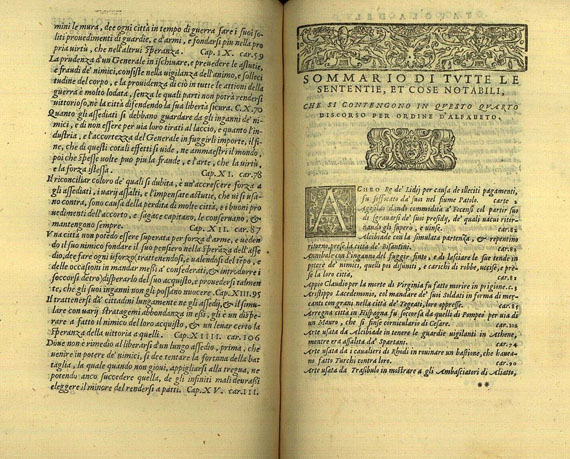 mini le mura, dee ogni città in tempo di guerra fare i suoi soli
ti prouedimenti di guardie, e d'armi, e fondarsi più nella pro
pria virtù, che nell'altrui speranza. Cap. IX. car. 59
La prudenza d'un Generale in ischiuare, e preuedere le astutie,
e fraudi de' nimici, consiste nella vigilanza dell'animo, e solleci
tudine del corpo, e la prouidenza di ciò in tutte le attioni della
guerra è molto lodata, senza le quali parti non potrà rendersi
vittorioso, nè la città difendendo la sua libertà sicura. C. X. 70
Quanto gli assediati si debbano guardare da gli inganni de' ni-
mici, e di non essere per via loro tirati al laccio, e quanto l'in-
dustria, e l'accortezza del Generale in fuggirli importe, il fi-
ne, che di questi cotali effetti si uide, ne ammaestri il mondo,
poi che spesse uolte può piu la fraude, e l'arte, che la virtù,
e la forza istessa.
Cap. XI. car. 78
Il riconciliar coloro de' quali si dubita, è un'accrescere forza a
gli assediati, i uarij assalti, e l'impensate astutie, che ui s'usa-
no contra, sono causa della perdita di molte città, e i buoni pro
uedimenti dell'accorto, e sagace capitano, le conseruano, &
mantengono sempre. Cap. XII. car. 87
Vna città non potendo essere superata per forza d'arme, e ueden
do il suo nimico fondare il suo pensiero nella speranza dell'asse
dio, dee fare ogni isforzo, trattenendosi, e ualendosi del tepo, e
delle occasioni in mandar messi a' confederati, & introdurre i
soccorsi detro) disperarlo del suo acquisto, e prouedersi talmen
te, che gli suoi inganni non gli possano nuocere. Cap. XIII. 95
Il trattenersi da' cittadini lungamente ne gli assedij, & dissimu-
lare con uarij stratagemi abbondanza in essi, gli è un dispe-
rare a fatto il nimico del loro acquisto, & un leuar certo la
speranza della vittoria a quelli. Cap. XIIII. car. 106
Doue non è rimedio al liberarsi d'un lungo assedio, prima, che
uenire in potere de' nimici, si dee tentare la fortuna della bat
taglia, la quale quando non gioui, appigliarsi alla tregua, ne
potendo anco succedere quella, de gli infiniti mali deurassi
eleggere il minore del rendersi a patti. Cap. XV. car. 111.
SOMMARIO DI TVTTE LE
SENTENTIE, ET COSE NOTABILI,
CHE SI CONTENGONO IN QVESTO QVARTO
DISCORSO PER ORDINE D'ALFABETO.
ACHEO Re de' Lidij per causa de illeciti pagamenti,
fu soffocato da' suoi nel fiume Patolo. carte
dando commodità a' Focensi col partir suo
di sgrauarsi de' suoi presidij, de' quali uacui ritor-
nando gli supero, e uinse. car.
Alcibiade con la simulata partenza, & repentino
ritorno, prese la città de' Bisantini. car.
Annibale con l'inganno del fuggir finto, e di lasciare le sue tende in
potere de' nimici, quelli poi disuniti, e carichi di robbe, uccise, e pre-
se la loro città. car.
Appio Claudio per la morte di Virginia fu fatto morire in prigione. c.
Aristippo Lacedemone, col mandare de' suoi soldati in forma di mer-
canti con grani nella città de' Tegeati, loro oppresse. car.
Attegua città in Hispagna fu soccorsa da quelli di Pompei per uia di
un Stauro, che si finse cornicolario di Cesare. car.
Arte usata da Alcibiade in tenere le guardie uigilanti in Athene,
mentre era assalita da' Spartani. car.
Arte usata da i caualieri di Rhodi in rouinare un bastione, che haueua-
no fatto Turchi contra loro. car.
Arte usata da Trasibulo in mostrare a gli Ambasciatori di Aliatto,
**